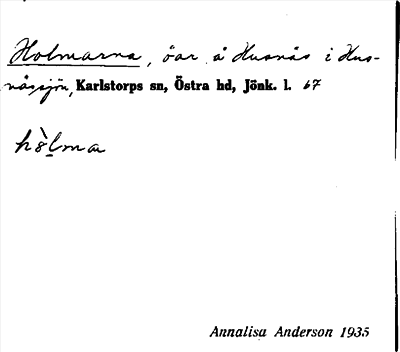 Holmarna, öar å Husnäs i Hus-
nässjön, Karlstorps sn, Östra hd, Jönk. l. 67
hòlma
Annalisa Anderson 1935